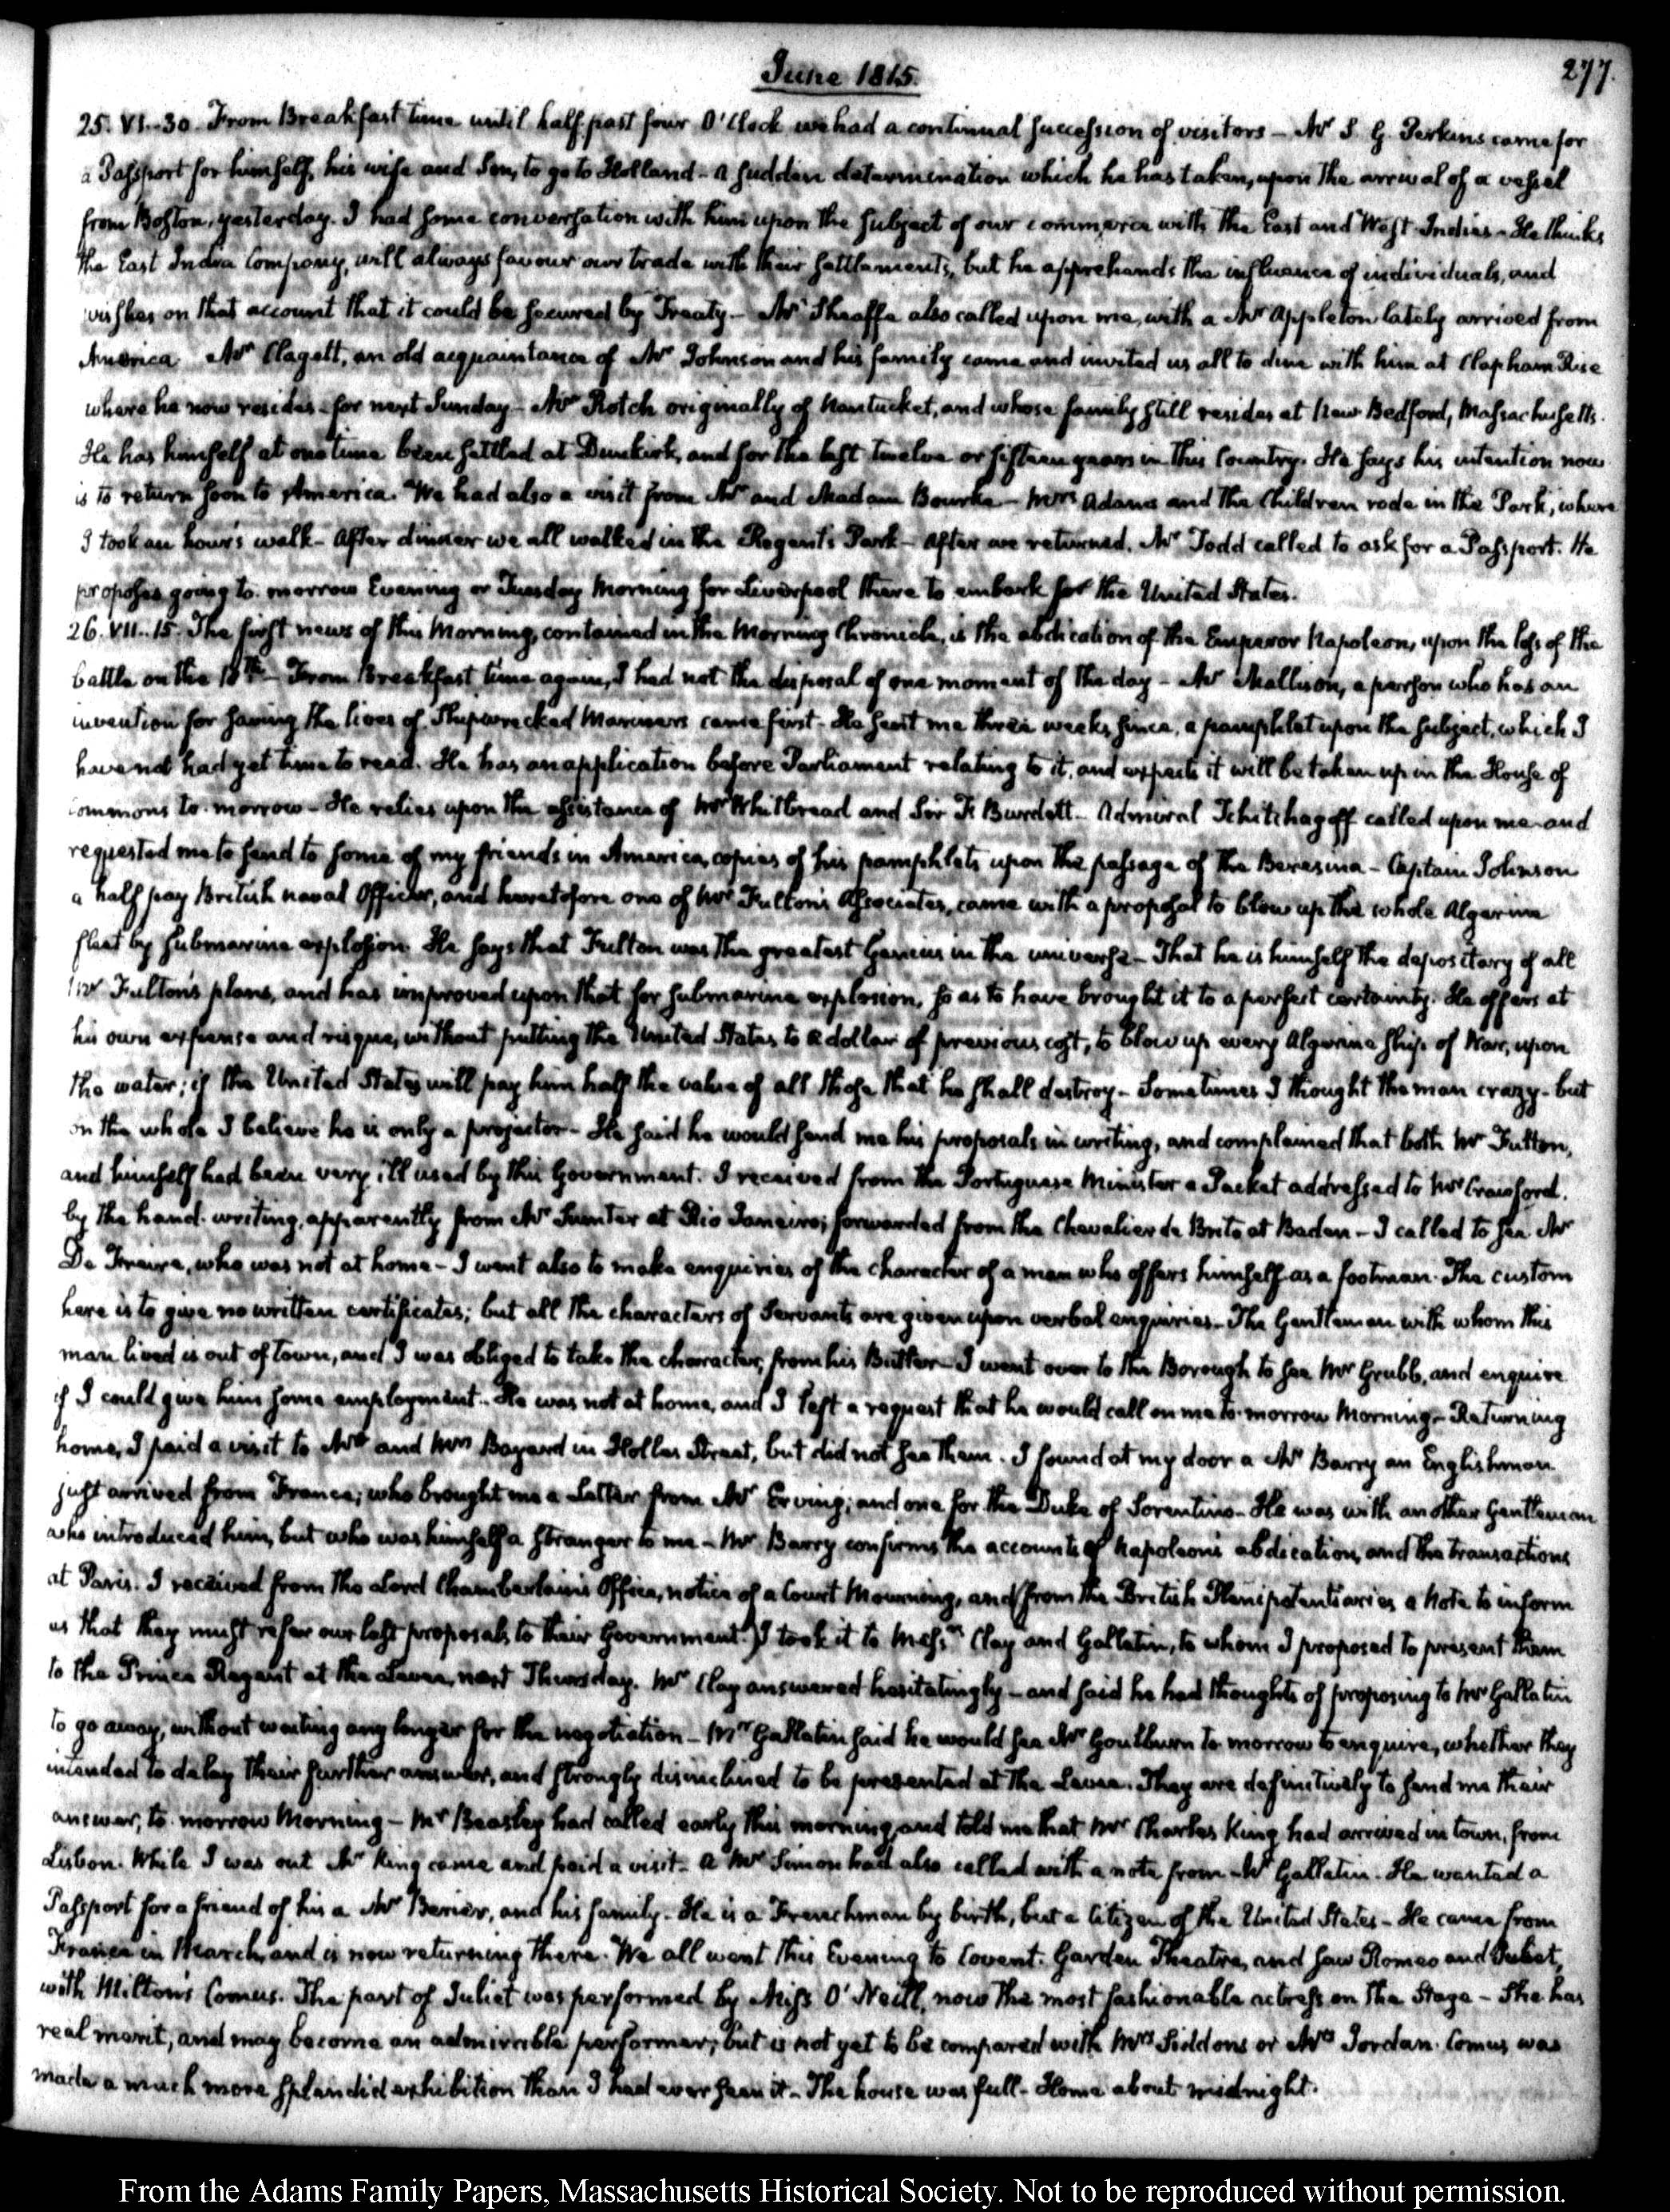 June 1815.
277.
25. VI..30. From Breakfast time until half past four O'Clock we had a continual succession of visitors – Mr S. G. Perkins came for
a Passport for himself, his wife and Son, to go to Holland – a sudden determination which he has taken, upon the arrival of a vessel
from Boston, yesterday. I had some conversation with him upon the subject of our commerce with the East and West-Indies – He thinks
the East India Company, will always favour our trade with their settlements, but he apprehends the influence of individuals, and
wishes on that account that it could be secured by Treaty – Mr Sheaffe also called upon me, with a Mr Appleton lately arrived from
America. Mr Clagett, an old acquaintance of Mr Johnson and his family came and invited us all to dine with him at Clapham Rise
where he now resides – for next Sunday – Mr Rotch originally of Nantucket, and whose family still resides at New Bedford, Massachusetts.
He has himself at one time been settled at Dunkirk, and for the last twelve or fifteen years in this Country. He says his intention now
is to return soon to America. We had also a visit from Mr and Madam Bourke – Mrs Adams and the Children rode in the Park, where
I took an hour's walk – After dinner we all walked in the Regent's Park – After we returned, Mr Todd called to ask for a Passport. He
proposes going to-morrow Evening or Tuesday Morning for Liverpool there to embark for the United States.
26. VII..15. The first news of this Morning, contained in the Morning Chronicle, is the abdication of the Emperor Napoleon, upon the loss of the
battle on the 18th – From Breakfast time again, I had not the disposal of one moment of the day – Mr Mallison, a person who has an
invention for saving the lives of Shipwrecked Mariners came first – He sent me three weeks since, a pamphlet upon the subject, which I
have not had yet time to read. He has an application before Parliament relating to it, and expects it will be taken up in the House of
Commons to-morrow – He relies upon the assistance of Mr Whitbread and Sir F. Burdett – Admiral Tchitchagoff called upon me and
requested me to send to some of my friends in America, copies of his pamphlets upon the passage of the Beresina – Captain Johnson
a half pay British naval Officer, and heretofore one of Mr Fulton's Associates, came with a proposal to blow up the whole Algerine
fleet by submarine explosion. He says that Fulton was the greatest Genius in the universe – That he is himself the depositary of all
Mr Fulton's plans, and has improved upon that for submarine explosion, so as to have brought it to a perfect certainty. He offers at
his own expense and risque, without putting the United States to a dollar of previous cost, to blow up every Algerine ship of War, upon
the water; if the United States will pay him half the value of all those that he shall destroy – Sometimes I thought the man crazy – but
on the whole I believe he is only a projector – He said he would send me his proposals in writing, and complained that both Mr Fulton,
and himself had been very ill used by this Government. I received from the Portuguese Minister a Packet addressed to Mr Crawford.
by the hand-writing, apparently from Mr Sumter at Rio Janeiro; forwarded from the Chevalier de Brito at Baden – I called to see Mr
De Freire, who was not at home – I went also to make enquiries of the character of a man who offers himself as a footman. The custom
here is to give no written certificates; but all the characters of Servants are given upon verbal enquiries – The Gentleman with whom this
man lived is out of town, and I was obliged to take the character, from his Butler – I went over to the Borough to see Mr Grubb, and enquire
if I could give him some employment – He was not at home, and I left a request that he would call on me to-morrow Morning – Returning
home, I paid a visit to Mr and Mrs Bayard in Holles Street, but did not see them. I found at my door a Mr Barry an Englishman
just arrived from France; who brought me a Letter from Mr Erving; and one for the Duke of Sorentino – He was with another Gentleman
who introduced him, but who was himself a stranger to me – Mr Barry confirms the accounts of Napoleon's abdication, and the transactions
at Paris. I received from the Lord Chamberlain's Office, notice of a Court Mourning, and from the British Plenipotentiaries a Note to inform
us that they must refer our last proposals to their Government. I took it to Messrs Clay and Gallatin, to whom I proposed to present them
to the Prince Regent at the Levee, next Thursday. Mr Clay answered hesitatingly – and said he had thoughts of proposing to Mr Gallatin
to go away, without waiting any longer for the negotiation – Mr Gallatin said he would see Mr Goulburn to-morrow to enquire, whether they
intended to delay their further answer, and strongly disinclined to be presented at the Levee. They are definitively to send me their
answer, to-morrow Morning – Mr Beasley had called early this morning, and told me that Mr Charles King had arrived in town, from
Lisbon. While I was out Mr King came and paid a visit – a Mr Simon had also called with a note from Mr Gallatin. He wanted a
Passport for a friend of his a Mr Berier, and his family. He is a Frenchman by birth, but a Citizen of the United States – He came from
France in March, and is now returning there. We all went this Evening to Covent-Garden Theatre, and saw Romeo and Juliet,
with Milton's Comus. The part of Juliet was performed by Miss O'Neill, now the most fashionable actress on the Stage – She has
real merit, and may become an admirable performer; but is not yet to be compared with Mrs Siddons or Mrs Jordan. Comus was
made a much more splendid exhibition than I had ever seen it – The house was full – Home about midnight.
From the Adams Family Papers, Massachusetts Historical Society. Not to be reproduced without permission.